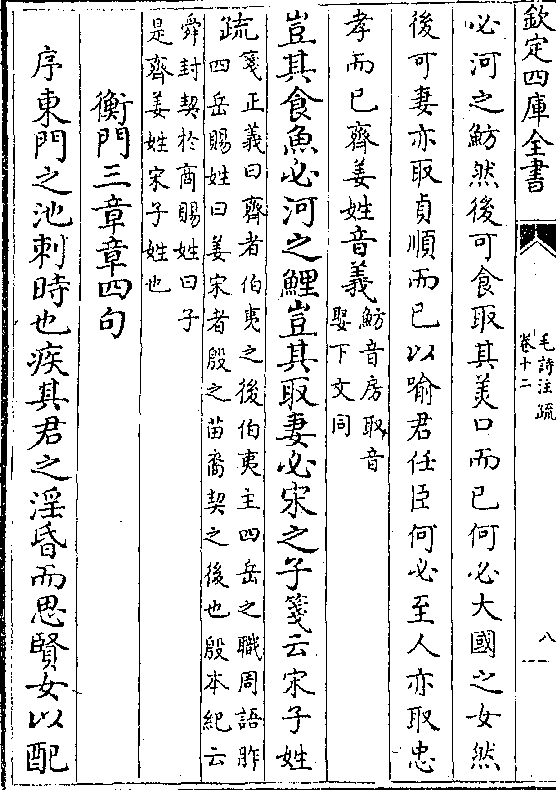 欽定四庫全書
毛詩注疏
卷十二
八
必河之魴然後可食取其美口而已何必大國之女然
後可妻亦取貞順而已以喻君任臣何必至人亦取忠
孝而已齊姜姓音義
魴音房取音
娶下文同
豈其食魚必河之鯉豈其取妻必宋之子箋云宋子姓
疏
箋正義曰齊者伯夷之後伯夷主四岳之職周語胙
四岳賜姓曰姜宋者殷之苗裔契之後也殷本紀云
舜封契於商賜姓曰子
是齊姜姓宋子姓也
衡門三章章四句
序東門之池刺時也疾其君之淫昏而思賢女以配